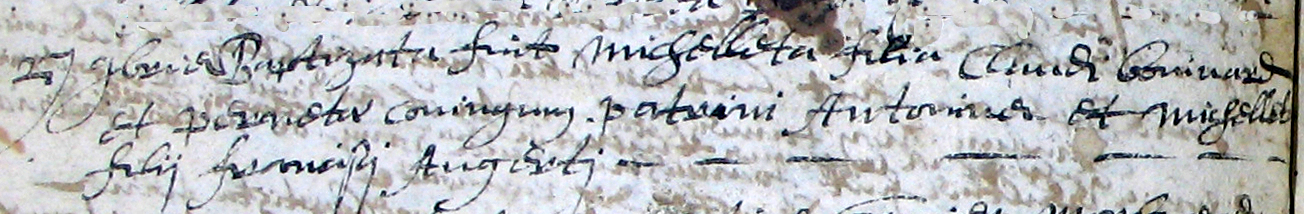 9bris Baptizata fuit Michelleta filia Claudi Bonivard
et pernetæ coniugum. patrini Antonius et Michelleta
filij francisci Augerti